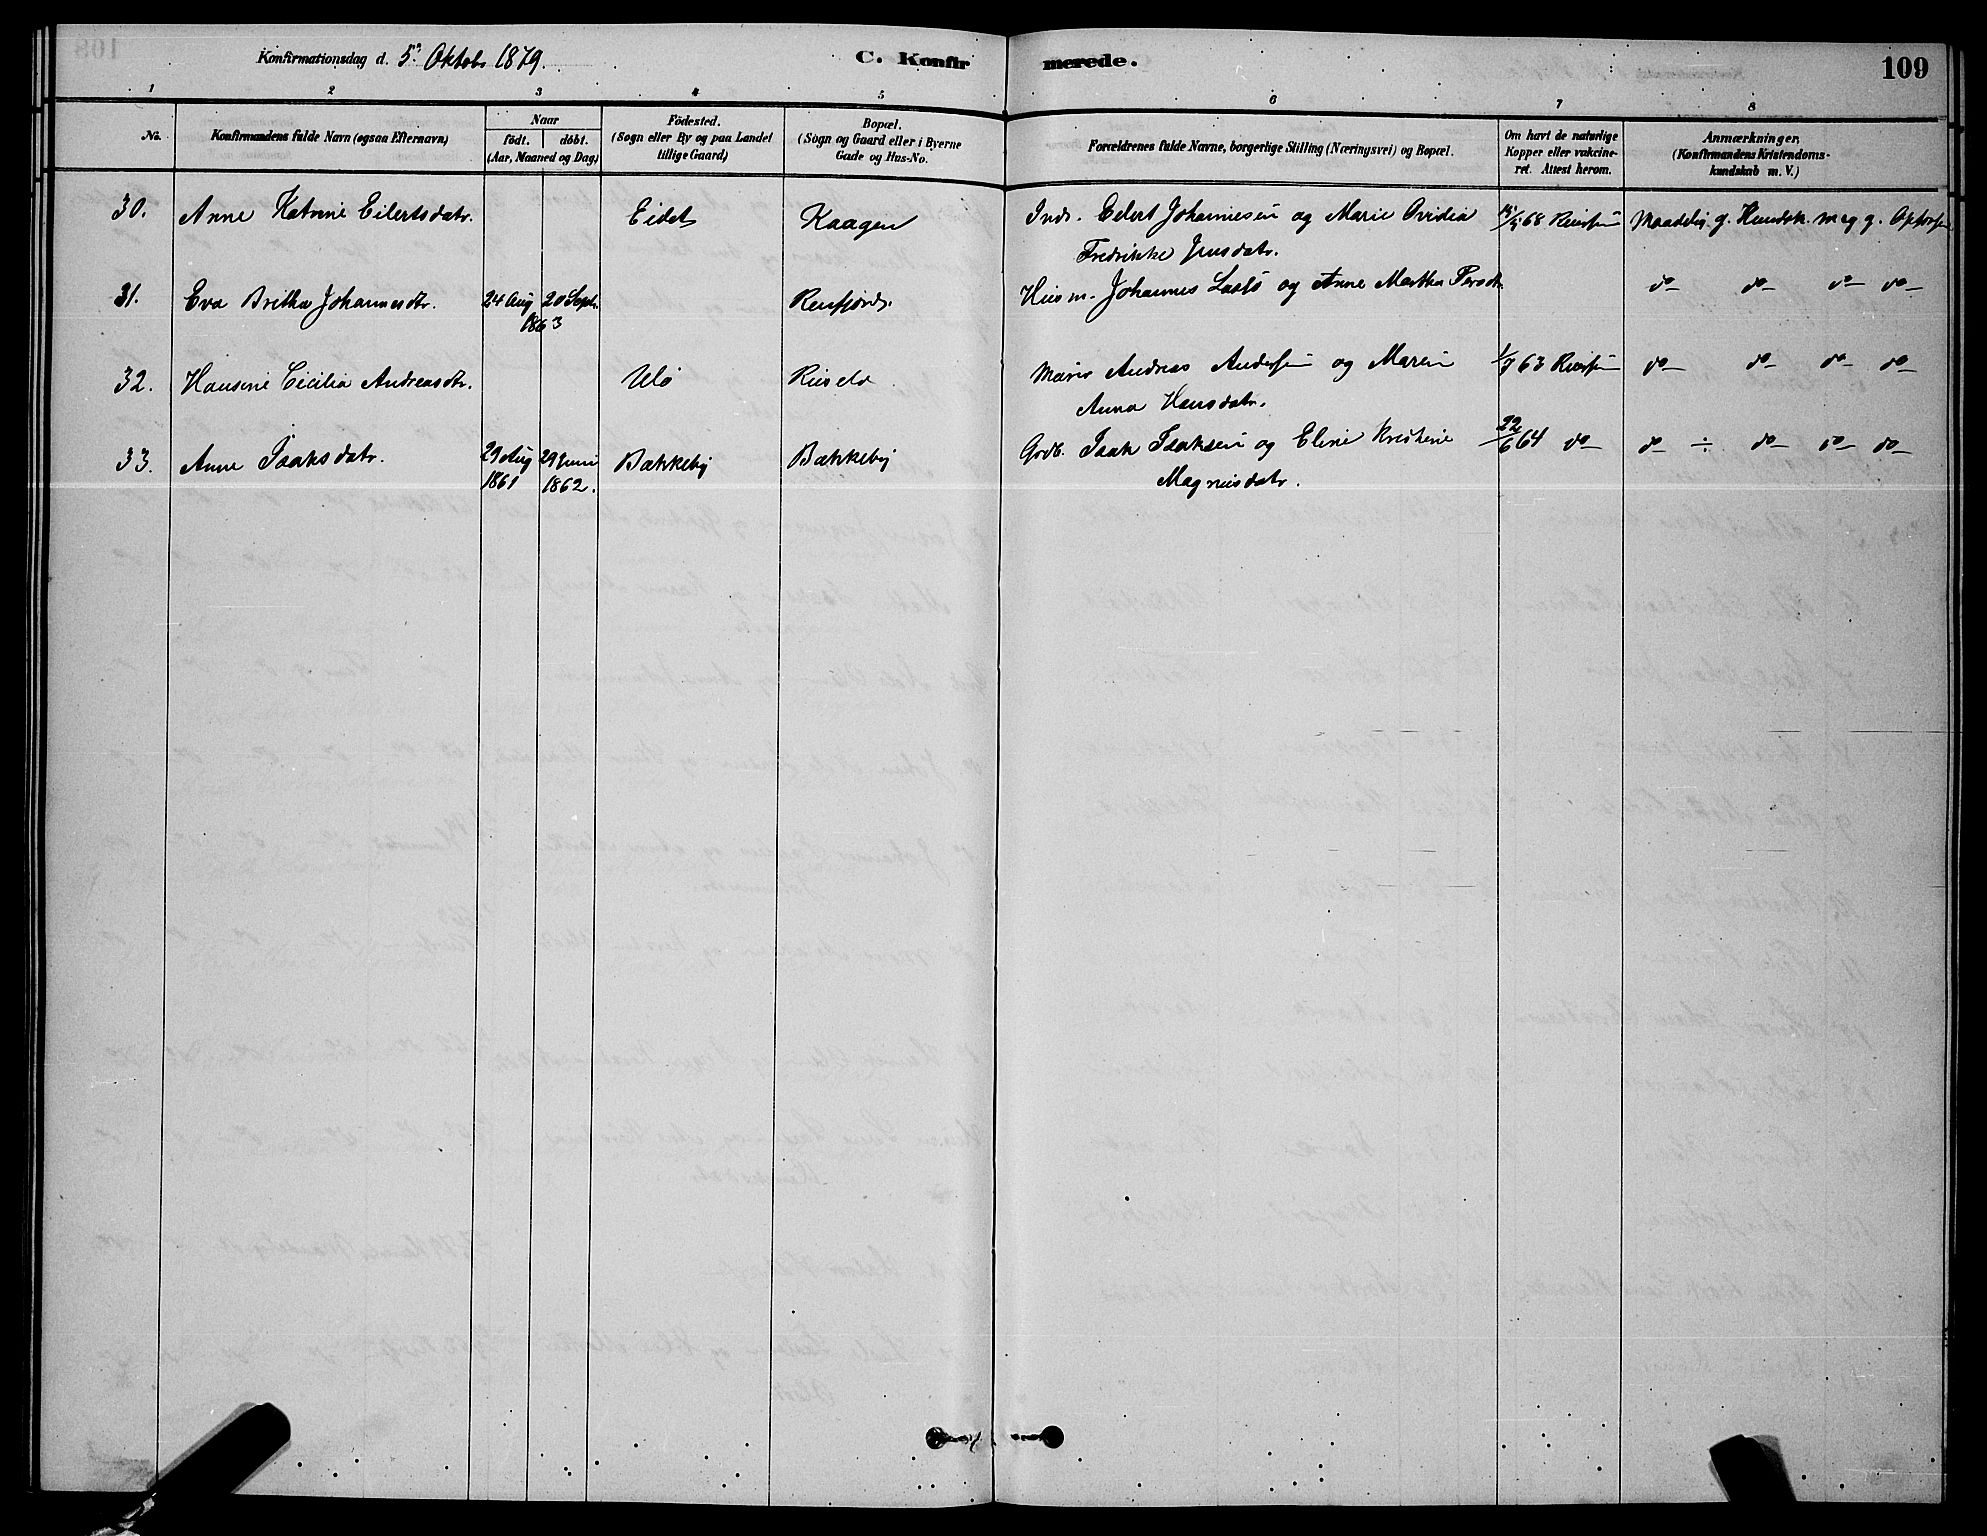 Konfirmationsdag d. 5te Oktob. 1879.
C. Konfirmerede.
109
1 2 3 4 5 6 7 8
No.
Konfirmandens fulde Navn (ogsaa Efternavn)
Naar
födt. döbt.
(Aar, Maaned og Dag)
Födested.
(Sogn eller By og paa Landet
tillige Gaard)
Bopæl.
(Sogn og Gaard eller i Byerne
Gade og Hus-No.
Forældrenes fulde Navne, borgerlige Stilling (Næringsvei) og Bopæl.
Om havt de naturlige
Kopper eller vakcine-
ret. Attest herom.
Anmærkninger,
(Konfirmandens Kristendoms-
kundskab m. V.)
30. Anne Katrine Eilertsdatr. Eidet Kaagen Inds. Eilert Johannesen og Marie Ovidia 68 Maadelig g. Kundsk. meg g.
Fredrikke Jensdatr.
31. Eva Britha Johannesdtr. 24 Aug 20 Septr. Husm. Johannes og Anne Martha do do do do
1863
32. Hansine Cecilia Andreasdtr. Ulö Andreas Andersen og Maren 63 do do do do
Anna Hansdatr.
33. Anne Isaksdatr. 29 Aug 29 Juni Bakkeby Bakkeby Grdb. Isak Isaksen og Eline Kristine 22/6 64 do do ÷ do do do
1861 1862.
Magnusdatr.